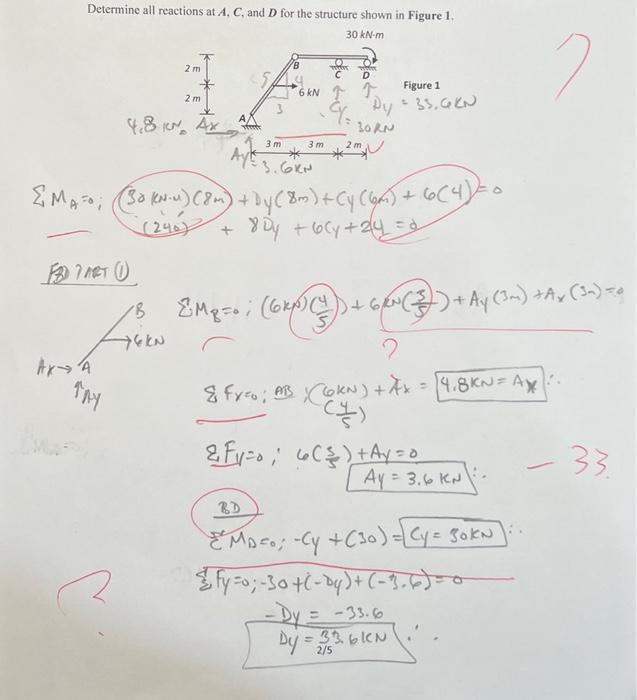 Determine all reactions at A, C, and D for the structure shown in Figure 1.
30 kN-m
B
2 m
C D
5 4
6 kN
Figure 1
2 m
3
Cy = 30KN
Dy = 33.6KN
4.8 KN Ax
A
3 m 3 m 2 m
Ay = 3.6KN
ΣMA=0; (30 KN-M)(8m) + Dy(8m) + Cy(6m) + 6(4) = 0
(240) + 8Dy + 6Cy + 24 = 0
FBD PART ①
B
→6KN
Ax→ A
↑Ay
ΣMB=0; (6KN)(4/5) + 6KN(3/5) + Ay(3m) + Ax(3m) = 0
?
ΣFx=0; AB; (6KN)(4/5) + Ax = 4.8KN = Ax ∴
ΣFy=0; 6(3/5) + Ay = 0
Ay = 3.6 KN ∴
-33
BD
ΣMD=0; -Cy + (30) = Cy = 30KN ∴
ΣFy=0; -30 + (-Dy) + (-3.6) = 0
-Dy = -33.6
Dy = 33.6KN ∴
2/5
?